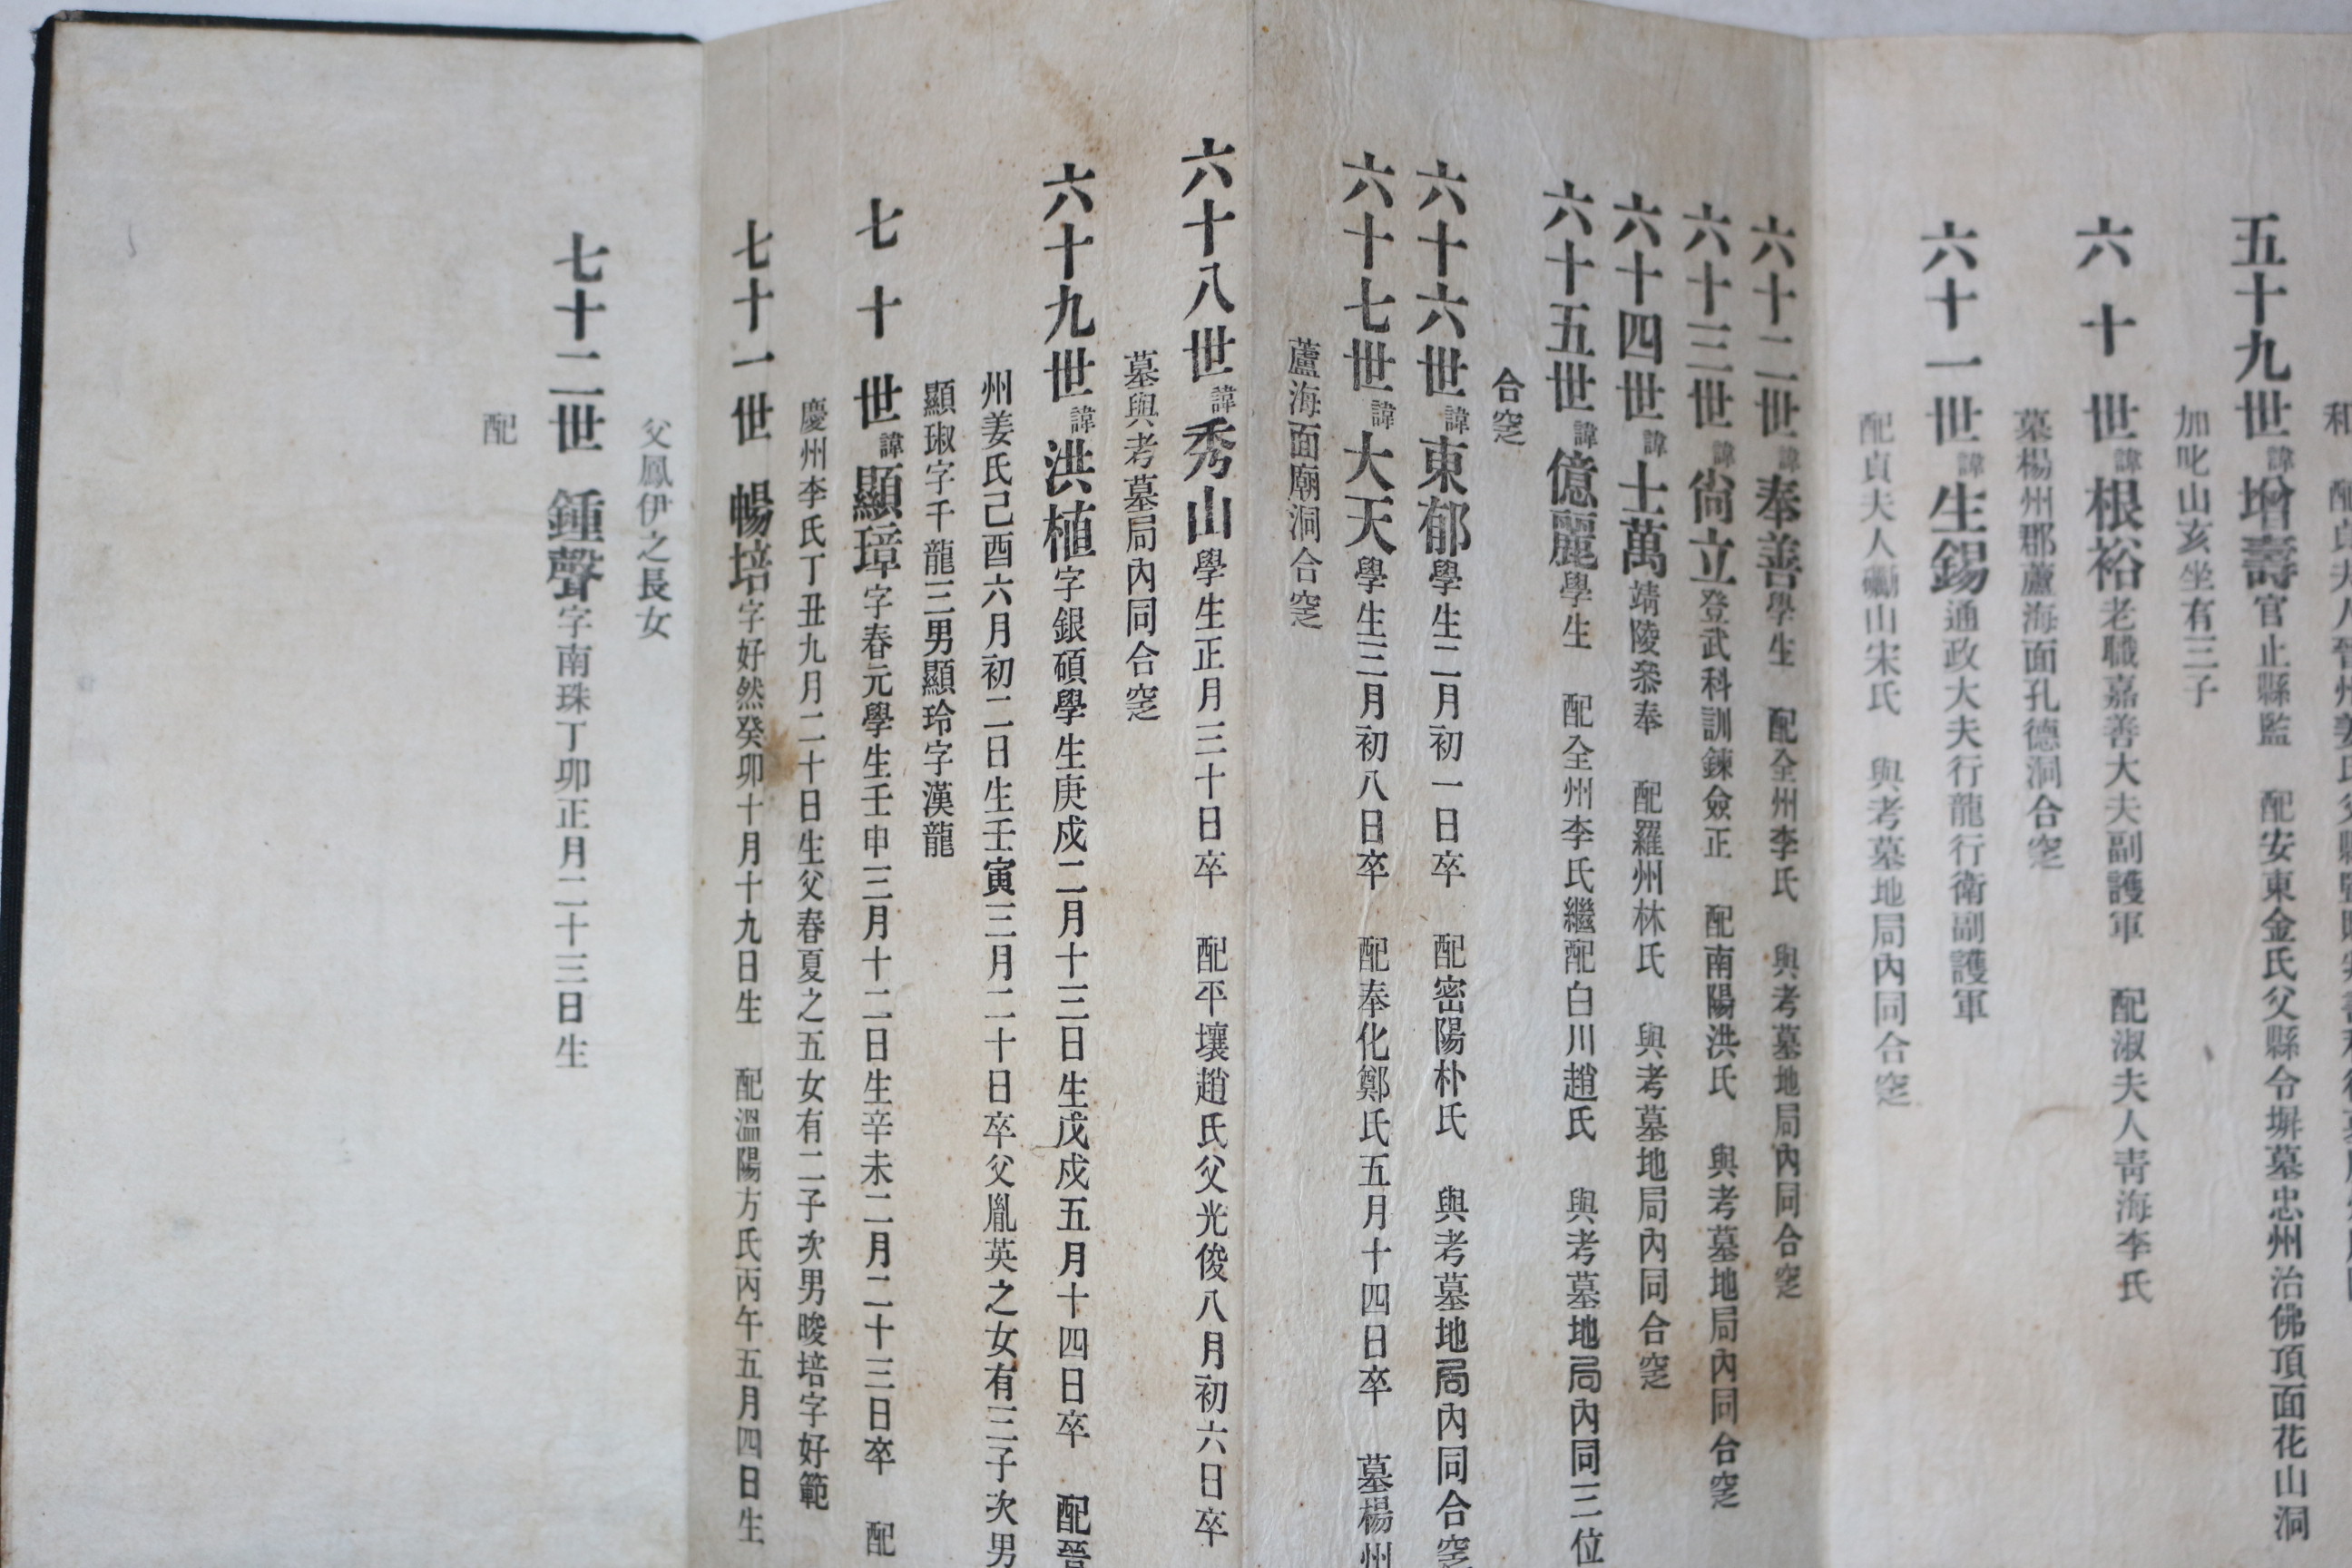 五十九世諱增壽官止縣監　配安東金氏父縣令塀墓忠州治佛頂面花山洞
加叱山亥坐有三子
六十世諱根裕老職嘉善大夫副護軍　配淑夫人靑海李氏
墓楊州郡蘆海面孔德洞合窆
六十一世諱生錫通政大夫行龍行衛副護軍
配貞夫人礪山宋氏　與考墓地局內同合窆
六十二世諱奉善學生　配全州李氏　與考墓地局內同合窆
六十三世諱尙立登武科訓鍊僉正　配南陽洪氏　與考墓地局內同合窆
六十四世諱士萬靖陵叅奉　配羅州林氏　與考墓地局內同合窆
六十五世諱億麗學生　配全州李氏繼配白川趙氏　與考墓地局內同三位
合窆
六十六世諱東郁學生二月初一日卒　配密陽朴氏　與考墓地局內同合窆
六十七世諱大天學生三月初八日卒　配奉化鄭氏五月十四日卒　墓楊州
蘆海面廟洞合窆
六十八世諱秀山學生正月三十日卒　配平壤趙氏父光俊八月初六日卒
墓與考墓局內同合窆
六十九世諱洪植字銀碩學生庚戍二月十三日生戊戍五月十四日卒　配晉
州姜氏己酉六月初二日生壬寅三月二十日卒父胤英之女有三子次男
顯琡字千龍三男顯玲字漢龍
七十世諱顯璋字春元學生壬申三月十二日生辛未二月二十三日卒　配
慶州李氏丁丑九月二十日生父春夏之五女有二子次男晙培字好範
七十一世　暢培字好然癸卯十月十九日生　配溫陽方氏丙午五月四日生
父鳳伊之長女
七十二世　鍾聲字南珠丁卯正月二十三日生
配